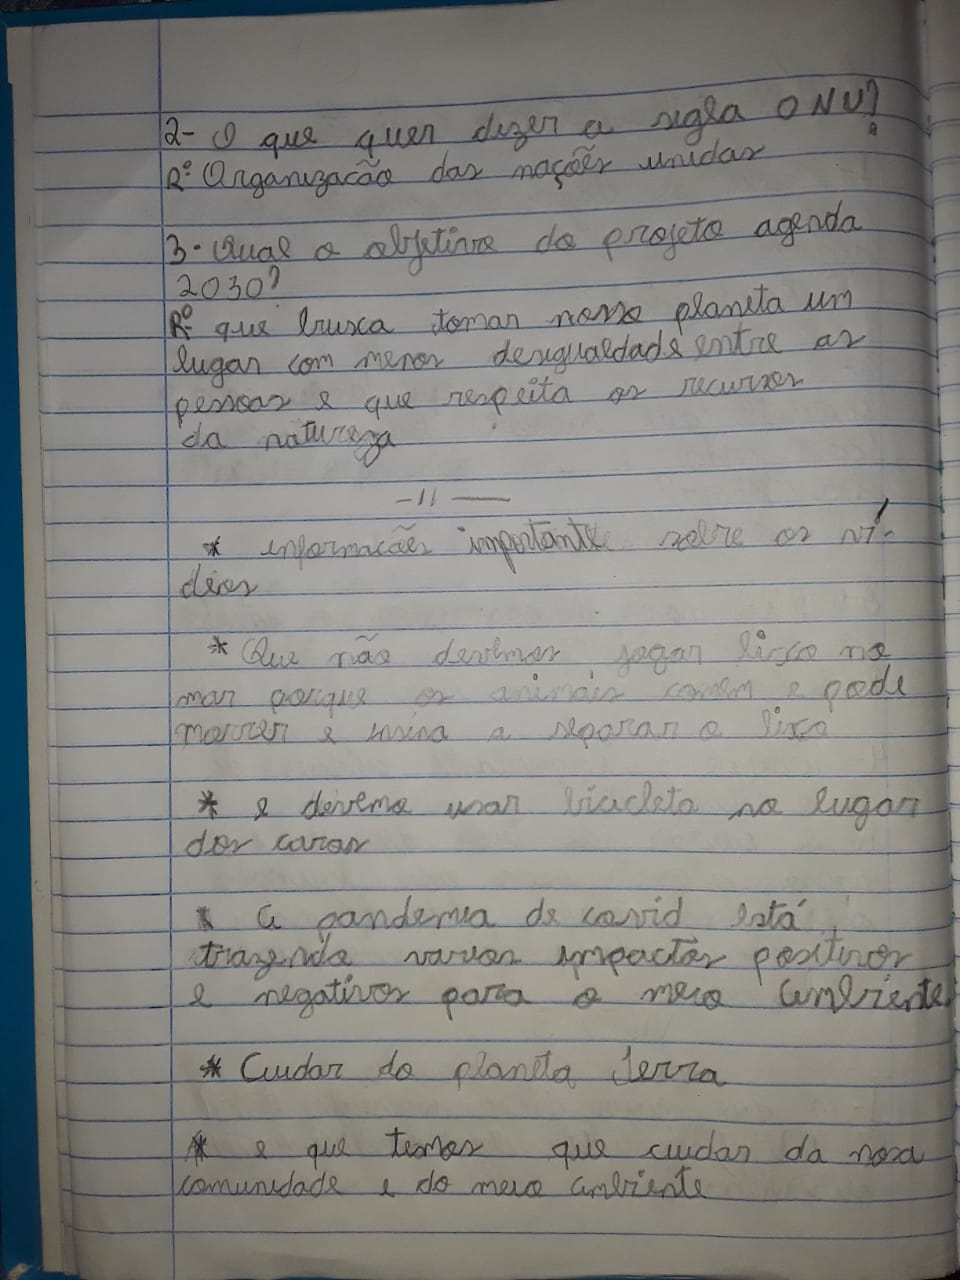 2- O que quer dizer a sigla ONU?
Rº Organizacão das nações unidas
3- Qual o objetivo do projeto agenda
2030?
Rº que busca tornar nosso planeta um
lugar com menos desigualdade entre as
pessoas e que respeita os recursos
da natureza
-11-
* informacães importante sobre os ví-
dios
* Que não devemos jogar lixo no
mar porque os animais comem e pode
morrer e ensina a separar o lixo
* e devemo usar bicicleta no lugar
dos caros
* A pandemia de covid está
trazendo varios impactos positivos
e negativos para o meio ambiente
* Cuidar do planeta Terra
* e que temos que cuidar da nosa
comunidade e do meio ambiente